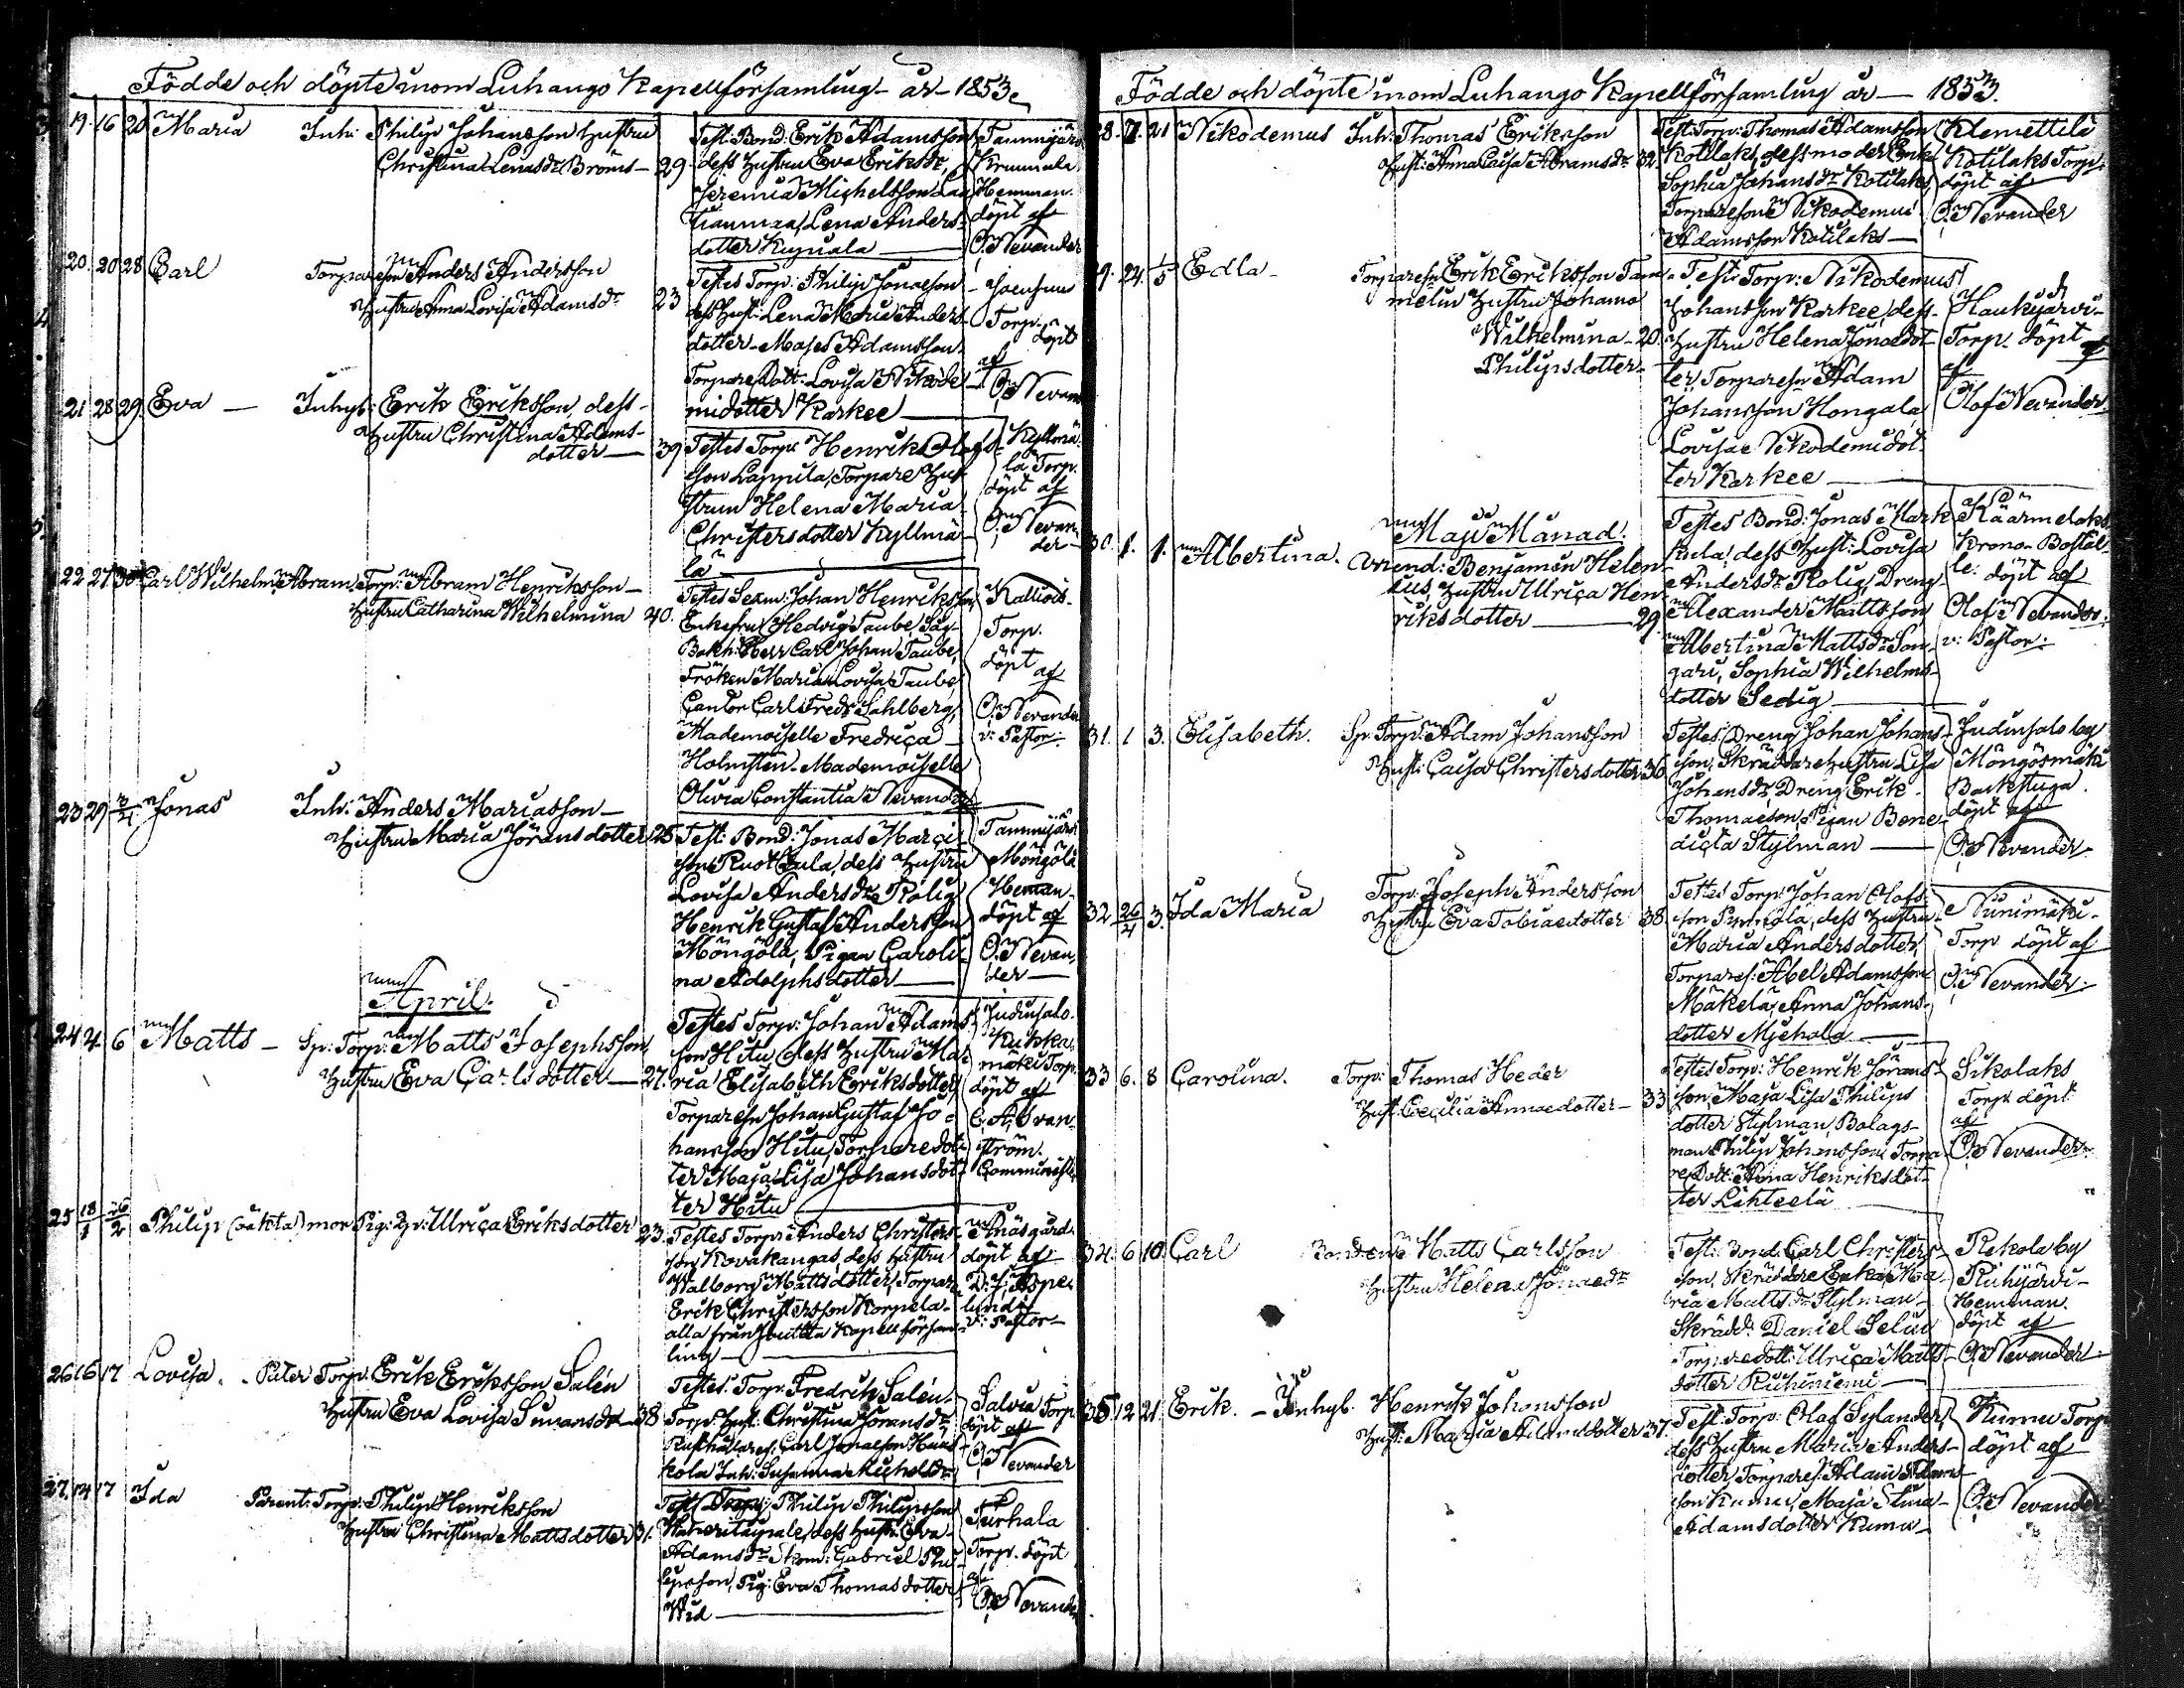 Födde och döpte inom Luhango Kapellförsamling år 1853.
19. 16 20 Maria Inh: Philip Johansson hustru
Christina Lenasdr Bröms — 29
Test: Bond: Erik Adamsson
dess hustru Eva Eriksdr,
Jeremia Michelsson
Lena Anders-
dotter
Tammijärvi
Hemman
döpt af
O. Nevander
20. 20 28 Carl Torpareson Anders Andersson
Hustru Anna Lovisa Adamsdr 23
Testes Torp: Philip Jonaeson
dess Hust: Lena Maria Anders-
dotter Moses Adamsson
Torpare Dott: Lovisa Nikode-
midotter Karkee
Torp. döpt
af
O. Nevander
21 28 29 Eva — Inhys: Erik Eriksson, dess
Hustru Christina Adams-
dotter — 39
Testes Torp: Henrik Olofs-
son Lappila, Torpare Hu-
strun Helena Maria
Christersdotter Kyllmä-
lä
Kyllmä-
lä Torp.
döpt af
O. Nevan-
der
22 27 30 Carl Wilhelm Abram Torp: Abram Henriksson —
Hustru Catharina Wilhelmina 40.
Testes Sexm: Johan Henriksson
Enkefru Hedvig Taube,
Bokh: Herr Carl Johan Taube,
Fröken Maria Lovisa Taube
Cantor Carl Fredr Sahlberg,
Mademoiselle Fredrica
Holmsten. Mademoiselle
Olivia Constantia Nevander
Torp.
döpt
af
O. Nevander
v: Pastor:
23 29 3/4 Jonas Inh: Anders Mariasson —
Hustru Maria Jöransdotter 25
Test: Bond: Jonas Marci-
son Ruokkula, dess Hustru
Lovisa Andersdr Rolig
Henrik Gustaf Andersson
Möngölä, Pigan Caroli-
na Adolphsdotter —
Tammijärvi
Möngölä
Heman
döpt af
O. Nevan-
der —
April.
24 4 6 Matts — Sp: Torp: Matts Josephsson,
Hustru Eva Carlsdotter — 27.
Testes Torp: Johan Adams-
son Hitu, dess Hustru Ma-
ria Elisabeth Eriksdotter,
Torpareson Johan Gustaf Jo-
hansson Hitu, Torparedot-
ter Maja Lisa Johansdot-
ter Hitu
Judinsalo
Kukka-
mäki Torp.
döpt af
C. A. Svan-
ström.
Comminist:
25 18/1 26/2 Philip (oäkta) mor Pig: Ulrica Eriksdotter 23.
Testes Torp: Anders Christers-
son Kovakangas, dess hustru
Walborg Mattsdotter, Torpare
Erik Christersson Korpela
alla från Joutsa Kapellförsam-
ling —
döpt af
Aspe-
lund
v: Pastor
26 16 17 Lovisa. Pater Torp: Erik Eriksson Salén
Hustru Eva Lovisa Simonsdr — 38
Testes: Torp: Fredrik Salén
Torp: Hust: Christina Joransdr
Rusthållares: Carl Jonaeson
Inh: Susanna Michelsdr
Salvia Torp
döpt af
O. Nevander
27. 14 17 Ida Parent: Torp: Philip Henriksson
Hustru Christina Mattsdotter 31.
Test: Torp: Philip Philipsson
dess hust: Eva
Adamsdr Gabriel Phi-
lipsson, Pig: Eva Thomasdotter
Wid —
Purhala
Torp. döpt
af
O. Nevander
Födde och döpte inom Luhango Kapellförsamling år — 1853.
28. 7. 21 Nikodemus Inh: Thomas Eriksson
Hust: Anna Caisa Abramsdr 32.
Test: Torp: Thomas Adamsson
Kotilaks, dess moder Enk:
Sophia Johansdr Kotilaks,
Torpareson Nikodemus
Adamsson Kotilaks —
Klemettilä
Kotilaks Torp.
döpt af
O. Nevander
29. 24. 1/5 Edla — Torpareson Erik Eriksson Tam-
melin Hustru Johanna
Wilhelmina 20
Philipsdotter
Test: Torp: Nikodemus
Johansson Karkee, dess
hustru Helena Jonaedot-
ter, Torpareson Adam
Johansson Hongala,
Lovisa Nikodemidot-
ter Karkee —
Haukijärvi
Torp. döpt
af
Olof Nevander
Maji Månad.
30. 1. 1. Albertina. Arrend: Benjamin Helen-
ius, Hustru Ulrica Hen-
riksdotter — 29.
Testes Bond: Jonas Mark-
kula, dess Hust: Lovisa
Andersdr Rolig, Dreng
Alexander Mattsson
Albertina Mattsdr Son-
gari, Sophia Wilhelms-
dotter Sedig
Käärmelaks
Krono Bostäl-
le. döpt af
Olof Nevander
v: Pastor:
31. 1 3. Elisabeth. Sp: Torp: Adam Johansson
Hust: Caisa Christersdotter 36
Testes, Dreng Johan Johans-
son, Skräddare hustru Lisa
Johansdr, Dreng Erik
Thomaeson, Pigan Bene-
dicta Stylman —
Judinsalo by
Möngösmäki
Backstuga.
döpt af
O. Nevander
32 26/4 3. Ida Maria Torp: Joseph Andersson
Hustru Eva Tobiaedotter 38
Testes Torp: Johan Olofs-
son dess Hustru
Maria Andersdotter,
Torpares: Abel Adamsson
Mäkelä, Anna Johans-
dotter
Niinimäki
Torp döpt af
O. Nevander
33 6. 8 Carolina. Torp: Thomas Heder
Hust: Cecilia Annaedotter — 33
Testes Torp: Henrik Jörans-
son, Maja Lisa Philips
dotter Stylman, Bolags-
man Philip Johansson, Torpa-
re Dott: Anna Henriksdot-
ter Lehtelä
Sikolaks
Torp döpt
af
O. Nevander
34. 6 10. Carl Bondeson Matts Carlsson
Hustru Helena Jonaedr
Test: Bond: Carl Christers-
son, Skräddare Enkan Ma-
ria Mattsdr Stylman
Skrädd: Daniel Selin
Torparedott: Ulrica Matts-
dotter Riihiniemi
Rekola by
Riihijärvi
Hemman.
döpt af
O. Nevander
35 12 21 Erik. — Inhys. Henrik Johansson
Hust: Maria Adamsdotter 37.
Test: Torp: Olof Sylander
dess Hustru Maria Anders-
dotter Torpares: Adam Adam-
son Kumu, Maja Stina
Adamsdotter Kumu
Kumu Torp
döpt af
O. Nevander